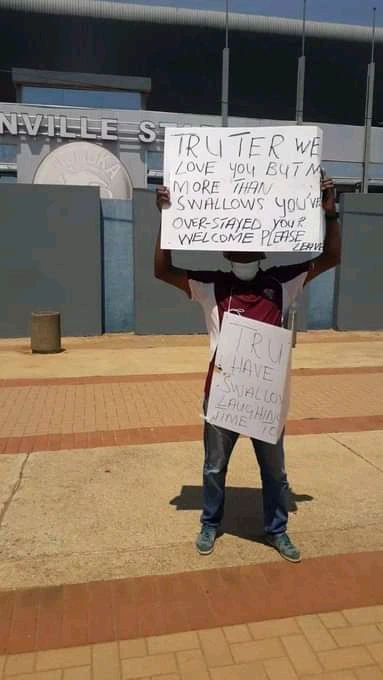 NVILLE ST
TRUTER WE
LOVE YOU BUT N
MORE THAN
SWALLOWS YOU'VE
OVER-STAYED YOUR
WELCOME PLEASE
LEAVE
TRU
HAVE
SWALLOW
LAUGHING
TIME TO